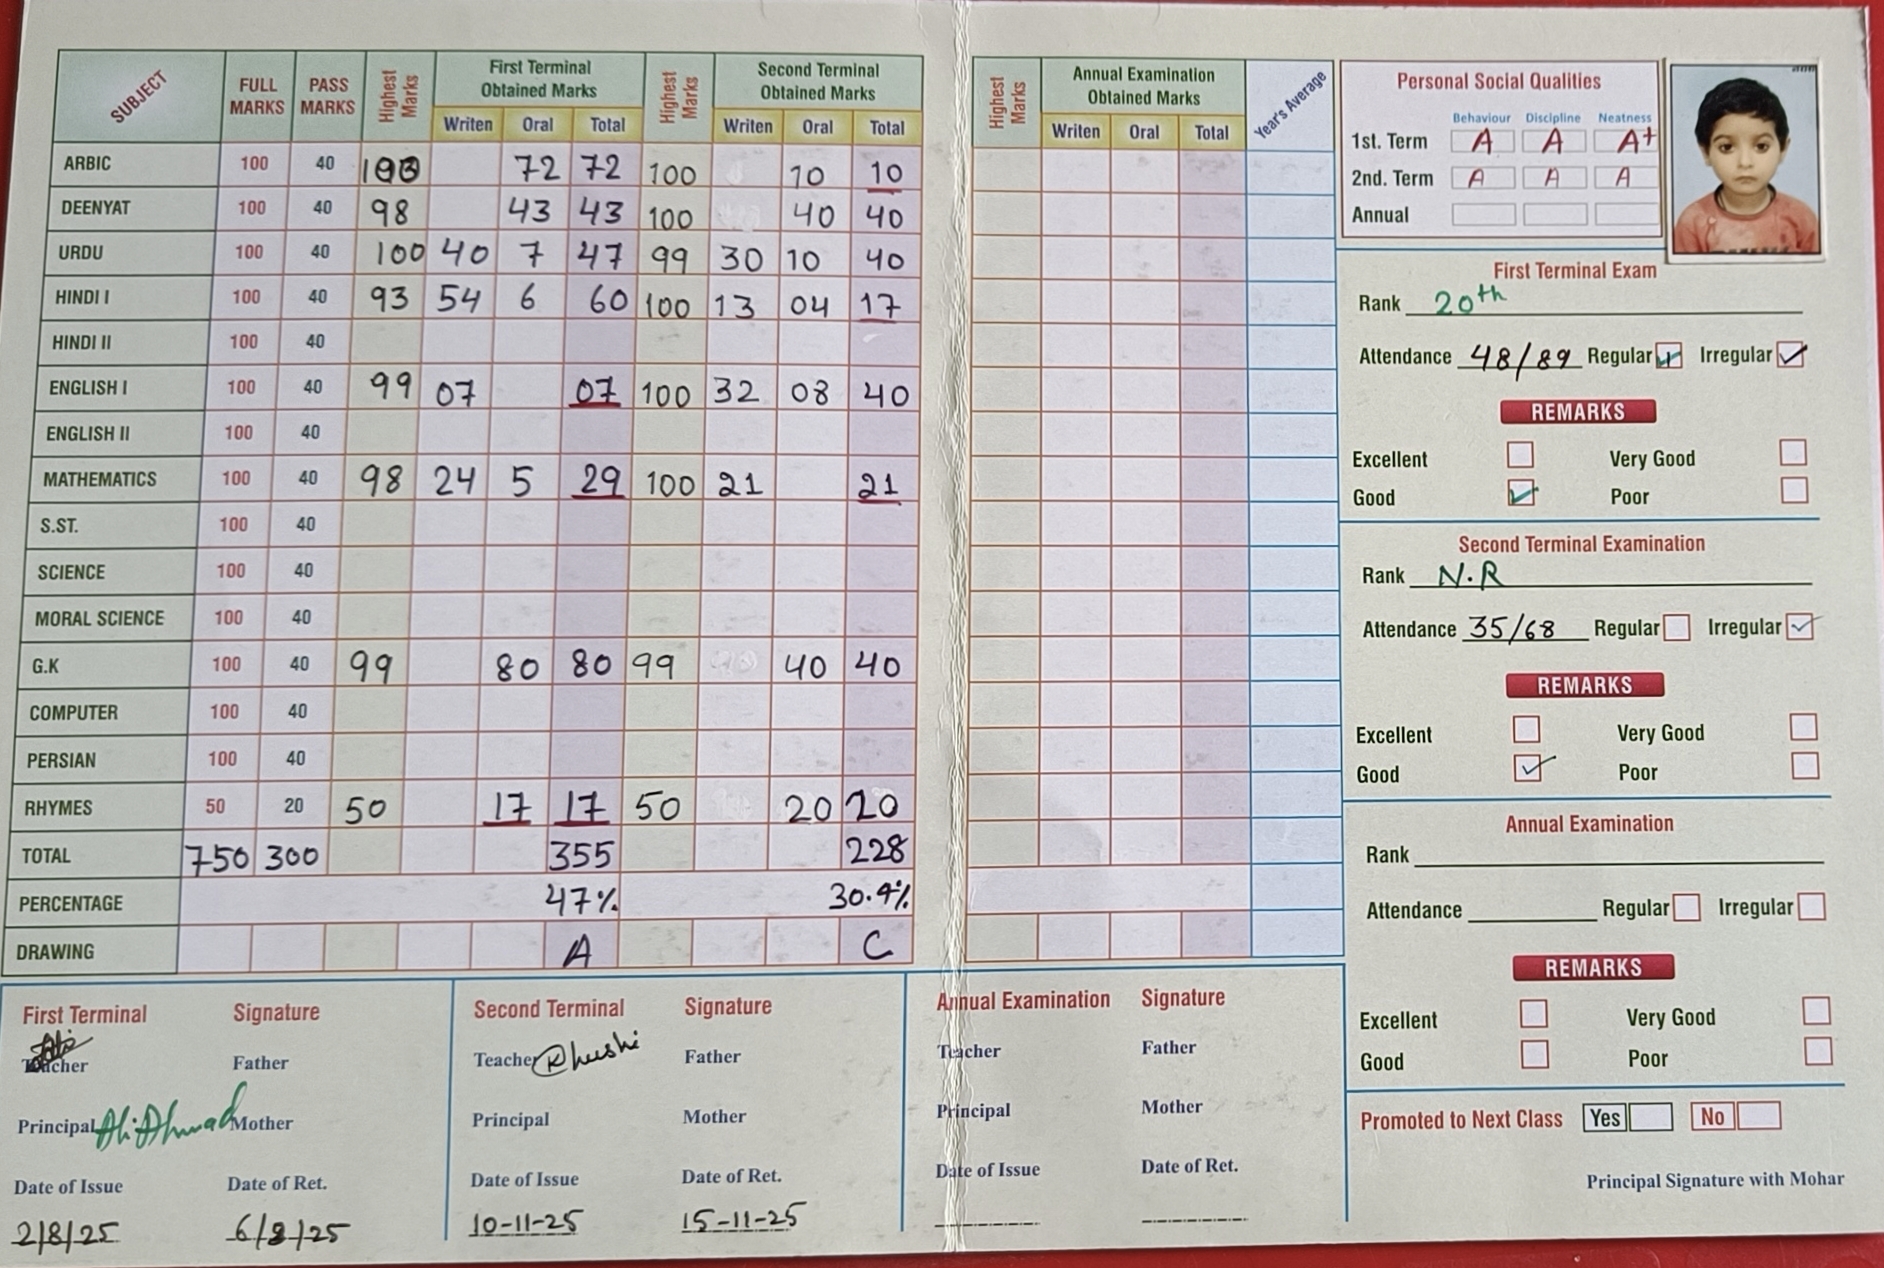 SUBJECT FULL MARKS PASS MARKS Highest Marks First Terminal Obtained Marks Highest Marks Second Terminal Obtained Marks Highest Marks Annual Examination Obtained Marks Year's Average
Writen Oral Total Writen Oral Total Writen Oral Total
ARBIC 100 40 100 72 72 100 10 10
DEENYAT 100 40 98 43 43 100 40 40
URDU 100 40 100 40 7 47 99 30 10 40
HINDI I 100 40 93 54 6 60 100 13 04 17
HINDI II 100 40
ENGLISH I 100 40 99 07 07 100 32 08 40
ENGLISH II 100 40
MATHEMATICS 100 40 98 24 5 29 100 21 21
S.ST. 100 40
SCIENCE 100 40
MORAL SCIENCE 100 40
G.K 100 40 99 80 80 99 40 40
COMPUTER 100 40
PERSIAN 100 40
RHYMES 50 20 50 17 17 50 20 20
TOTAL 750 300 355 228
PERCENTAGE 47% 30.4%
DRAWING A C
First Terminal Signature
Teacher Father
Principal Ali Ahmad Mother
Date of Issue Date of Ret.
2/8/25 6/8/25
Second Terminal Signature
Teacher Khushi Father
Principal Mother
Date of Issue Date of Ret.
10-11-25 15-11-25
Annual Examination Signature
Teacher Father
Principal Mother
Date of Issue Date of Ret.
Personal Social Qualities
Behaviour Discipline Neatness
1st. Term A A A+
2nd. Term A A A
Annual
First Terminal Exam
Rank 20th
Attendance 48/89 Regular Irregular
REMARKS
Excellent Very Good
Good Poor
Second Terminal Examination
Rank N.R
Attendance 35/68 Regular Irregular
REMARKS
Excellent Very Good
Good Poor
Annual Examination
Rank
Attendance Regular Irregular
REMARKS
Excellent Very Good
Good Poor
Promoted to Next Class Yes No
Principal Signature with Mohar